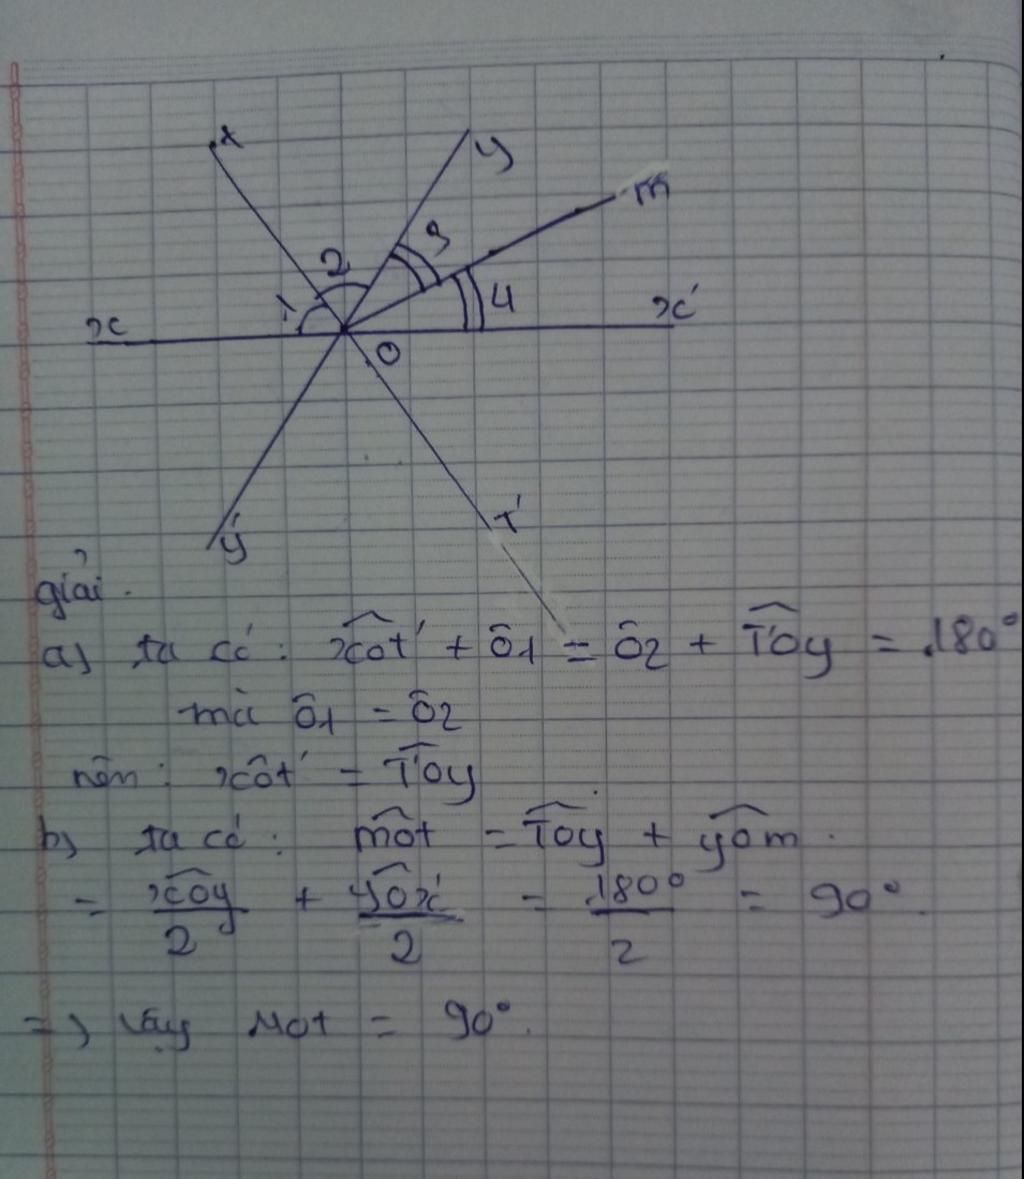 t
y
m
3
2
1
4
x
x'
O
t'
y'
giải.
a) ta có: xÔt' + Ô1 = Ô2 + T'Ôy = 180°
mà Ô1 = Ô2
nên: xÔt' = T'Ôy
b) ta có: mÔt = TÔy + yÔm.
= xÔy/2 + yÔx'/2 = 180°/2 = 90°.
=> vậy Mot = 90°.